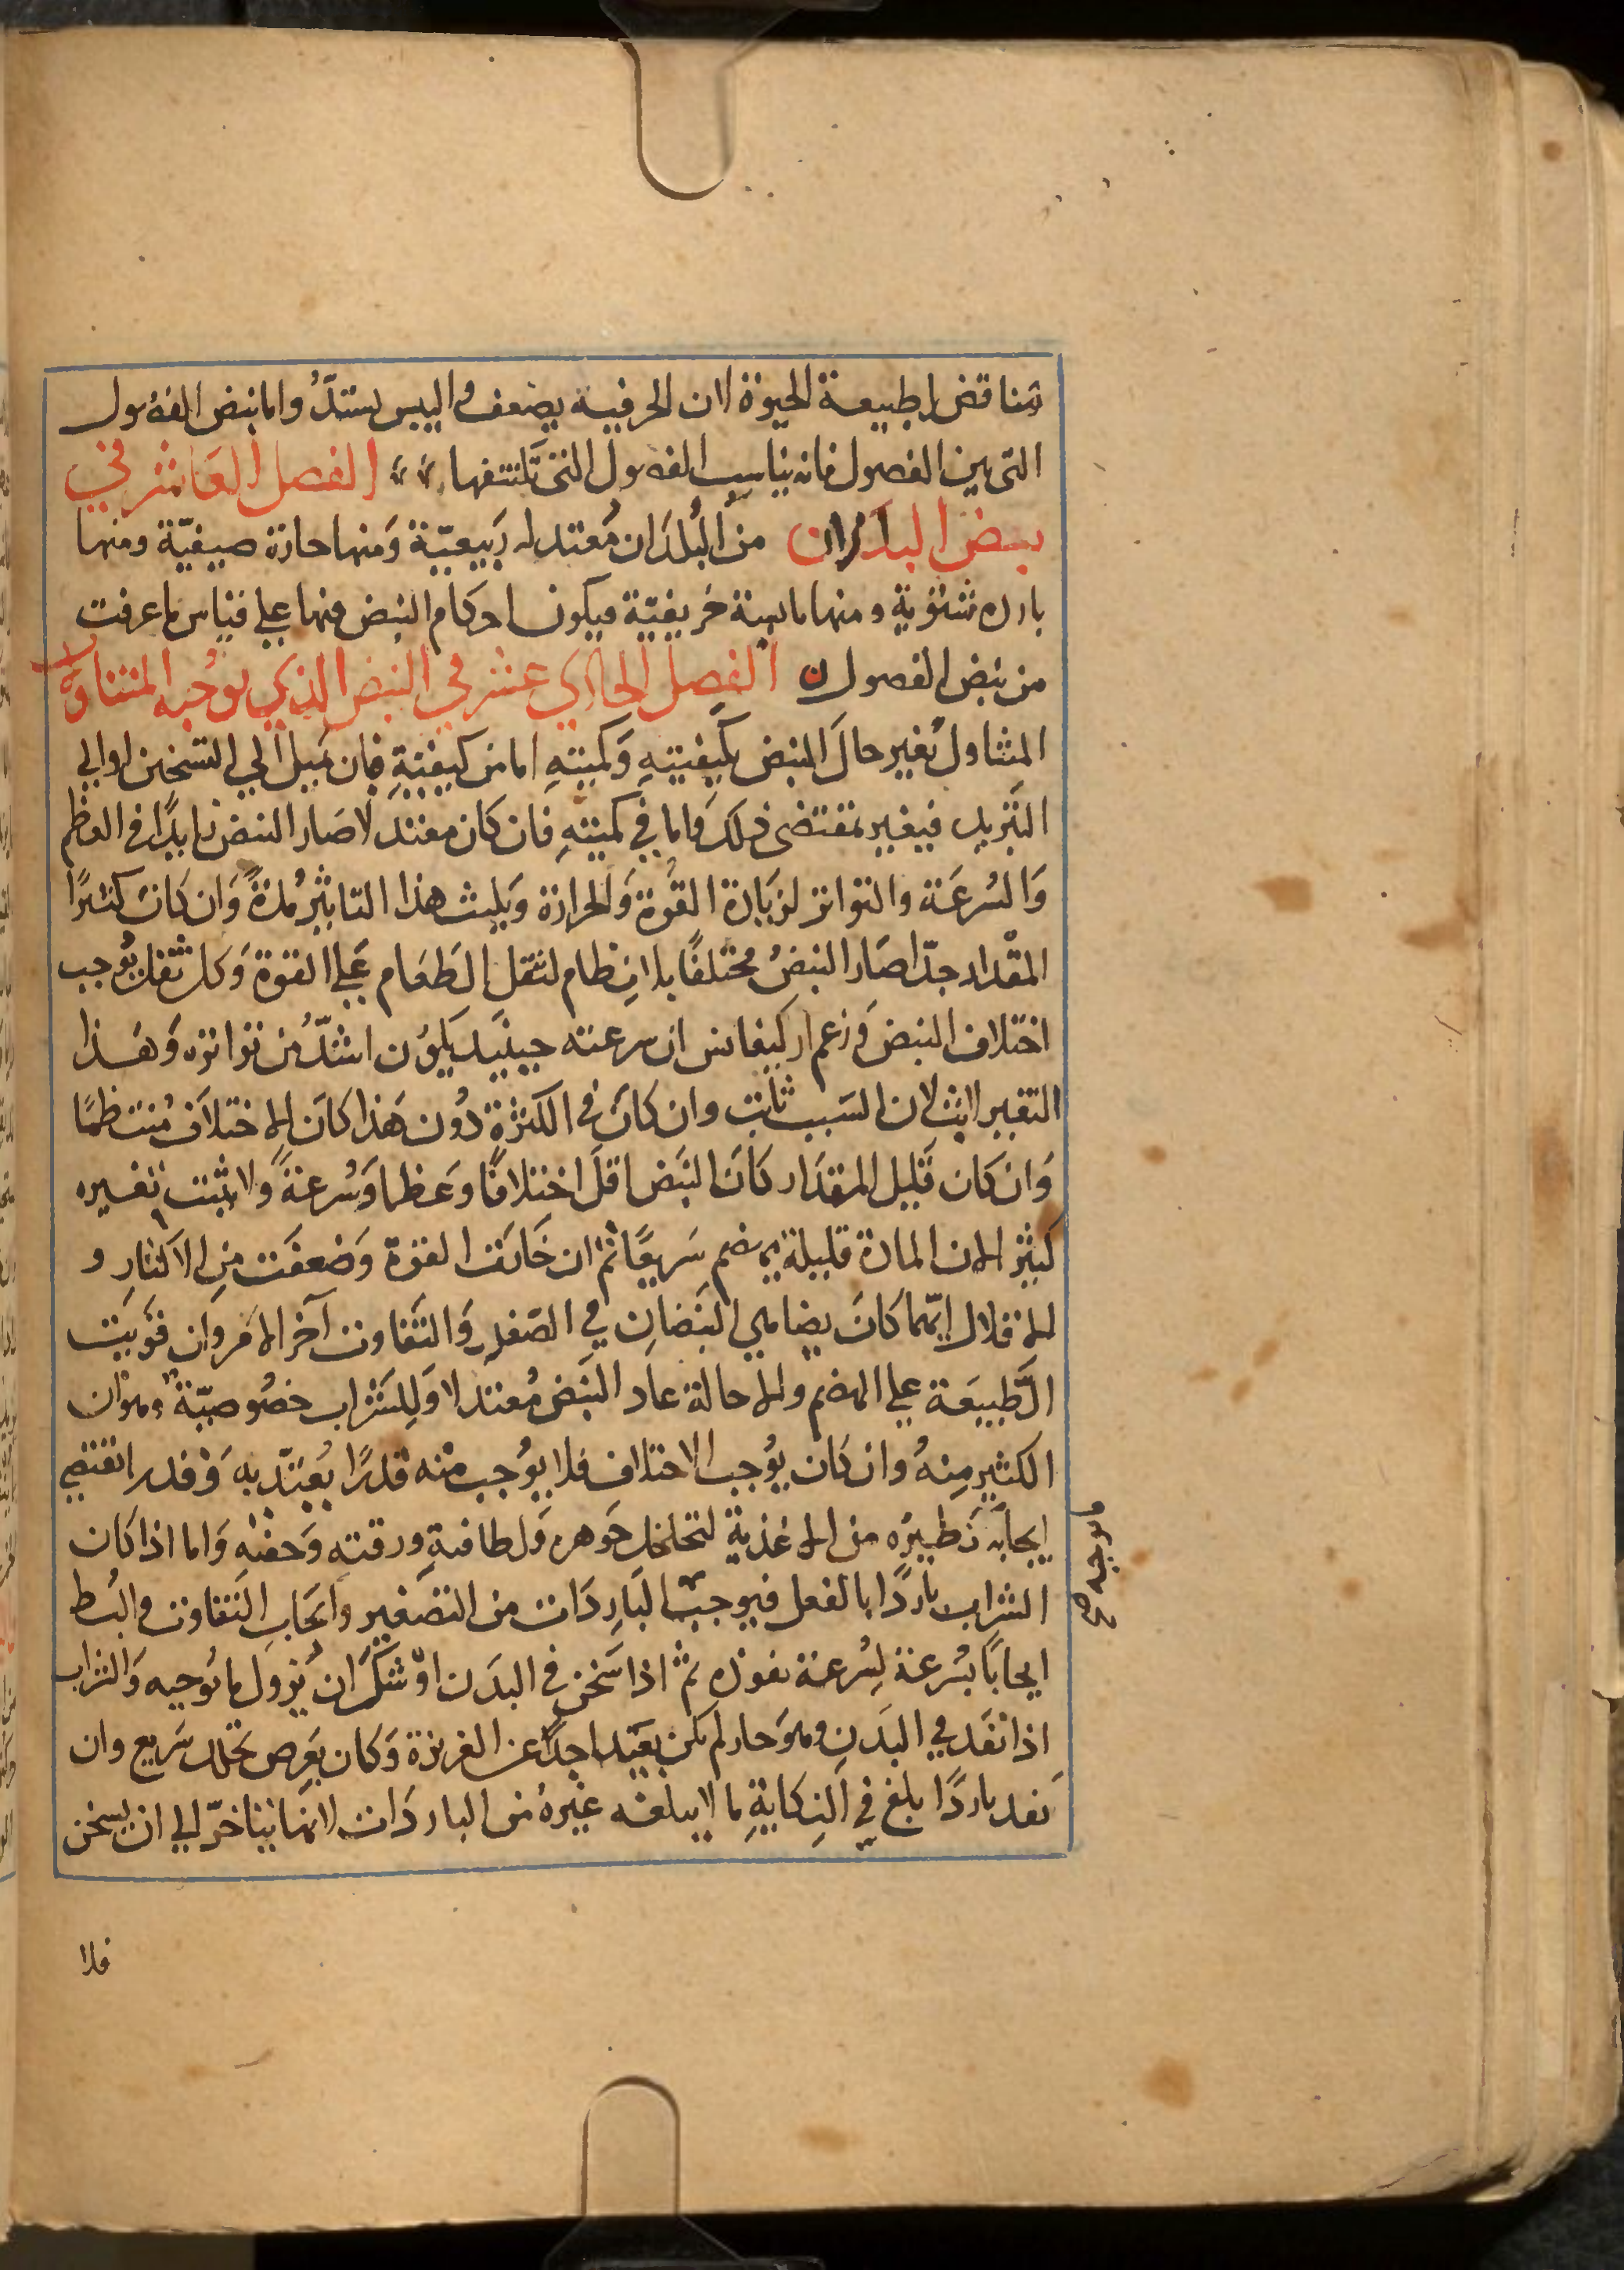 مناقض لطبيعة الحيوة لان الحر فيه يضعف واليبس يشتدّ واما نبض الفصول
التى بين الفصول فانه يناسب الفصول التى تكتنفها الفصل العاشر في
نبض البلدان من البُلدَان مُعتدله رَبيعيّة وَمنها حارة صيفيّة ومنها
بارده شتوية ومنها يابسة خريفيّة فيكون احكام النبض منها علي قياس ما عرفت
من نبض الفصول الفصل الحادي عشر في النبض الذي يوجبه المتناول
المتناول يُغير حالَ النبض بكيفيتهِ وَكميتهِ اما من كيفيتةِ فبان يَميل الي التسخين او الي
التبريد فيغير بمقتضى ذلك وَاما في كميتهِ فان كان معتدلا صَار النبض زايدًا في العظم
وَالسُرعَة والتواتر لزيَادة القُوة وَالحرارة وَيلبث هذا التاثير مُدةً وَان كانَ كثيرًا
المقْدار جدّا صَار النبضُ مختلفًا بلا انِظام لثقل الطَعَام عَلي القوة وَكل ثقل يُوجب
اختلاف النبض وَزعم اركيغانس ان سرعته حينيذ يكوُن اشدّ من تواتره وَهَذا
التغيير لابث لان السَبب ثابت وان كانَ في الكثرة دُون هَذا كانَ الاختلاف مُنتظمًا
وَان كان قَليل المقدَار كانَ النبَض اقلَ اختلافًا وعَظما وَسُرعةً وَلا يثبت تغييره
كثيرًا لان المادة قليلة يهضم سَريعًا ثم ان خَارَت القوة وَضعفَت مِن الاكثارِ و
الاقلال ايّهما كانَ يضاهي النبَضانِ في الصّغر وَالتَفاوت آخر الامر وان قَويَت
الطَّبيعَة علي الهضم والاحالة عاد النبَض مُعتدلا وَللشَراب خصُوصيّة وهو ان
الكثير مِنهُ وان كانَ يوُجب الاختلاف فلا يوُجب منه قدرًا يُعتدّ به وَقدر ايقتضي
ايجابَه نَظيرُه من الاغذية لتخلخل جَوهره وَلطافتهِ ورقته وَخفته وَاما اذا كان
الشراب باردًا بالفعل فيوجب البَارِدَات من التصَغير وايجَابِ التَفاوت والبُطء
ايجابًا بسُرعة لِسُرعة نفوذه ثم اذا سَخن في البدَن اوْشَكَ ان يزول ما يوُجبه وَالشراب
اذا نفَذ في البَدَنِ وهوَ حار لم يكن بعَيدا جدًا عن الغريزة وَكان بعَرض تحلل سَريع وان
نفذ باردًا بلغ في النِكايةِ ما لا يبلغه غيرهُ من الباردَات لانها يتاخّر الي ان يسخن
ما يوجبه صح
فلا